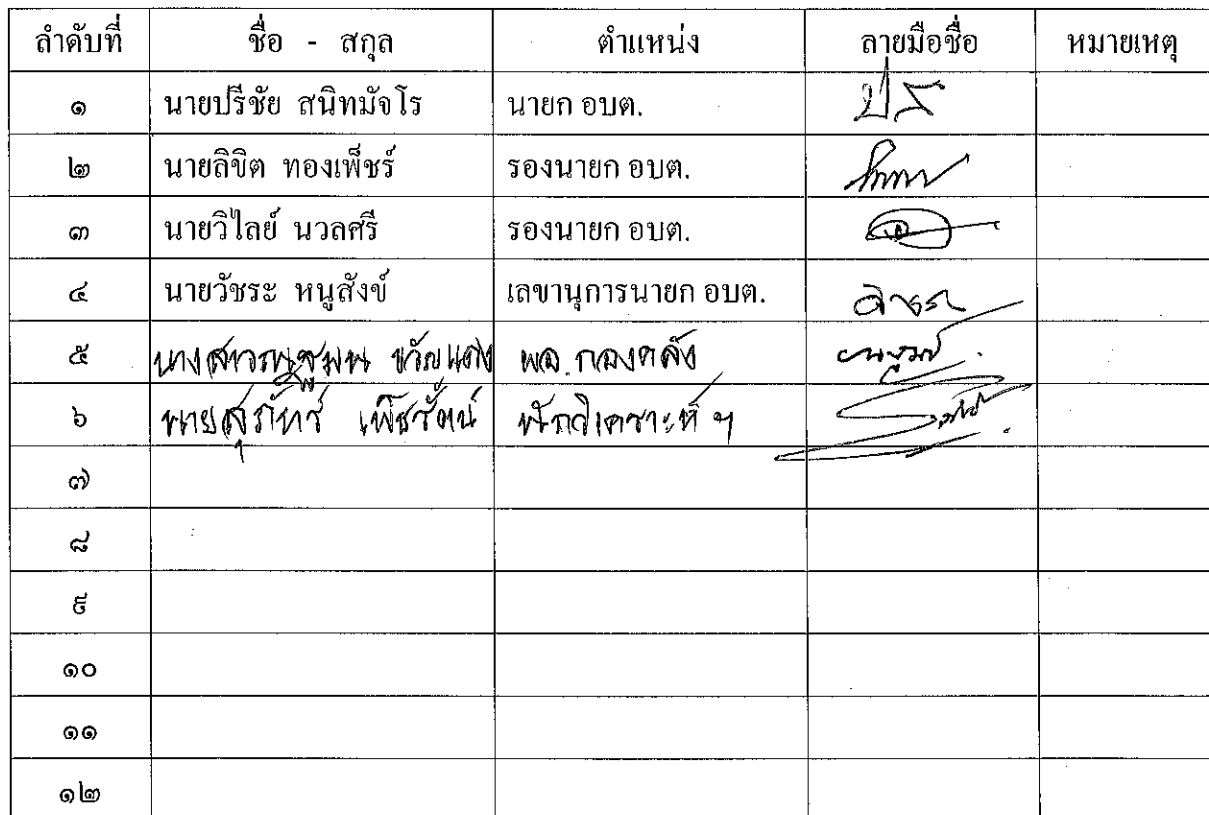 ลำดับที่ ชื่อ - สกุล ตำแหน่ง ลายมือชื่อ หมายเหตุ
๑ นายปรีชัย สนิทมัจโร นายก อบต. ปร
๒ นายลิขิต ทองเพ็ชร์ รองนายก อบต.
๓ นายวิไลย์ นวลศรี รองนายก อบต.
๔ นายวัชระ หนูสังข์ เลขานุการนายก อบต.
๕ ขวัญแดง ผอ.กองคลัง
๖ นายสุรภัทร์ เพ็ชรรัตน์ นักวิเคราะห์ ฯ
๗
๘
๙
๑๐
๑๑
๑๒